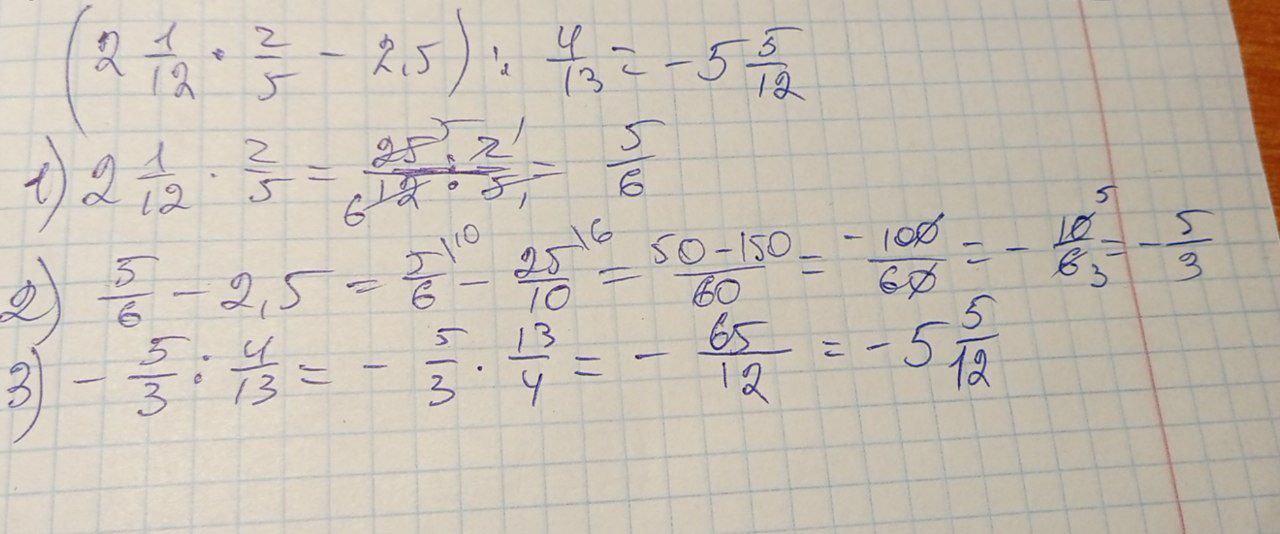 (2 1/12 · 2/5 - 2,5) : 4/13 = -5 5/12
1) 2 1/12 · 2/5 = 25 5 · 2 1 / 6 12 · 5 1 = 5/6
2) 5/6 \10 - 2,5 = 5/6 \10 - 25/10 \6 = 50-150/60 = -100/60 = - 10 5/6 3 = - 5/3
3) - 5/3 : 4/13 = - 5/3 · 13/4 = - 65/12 = -5 5/12